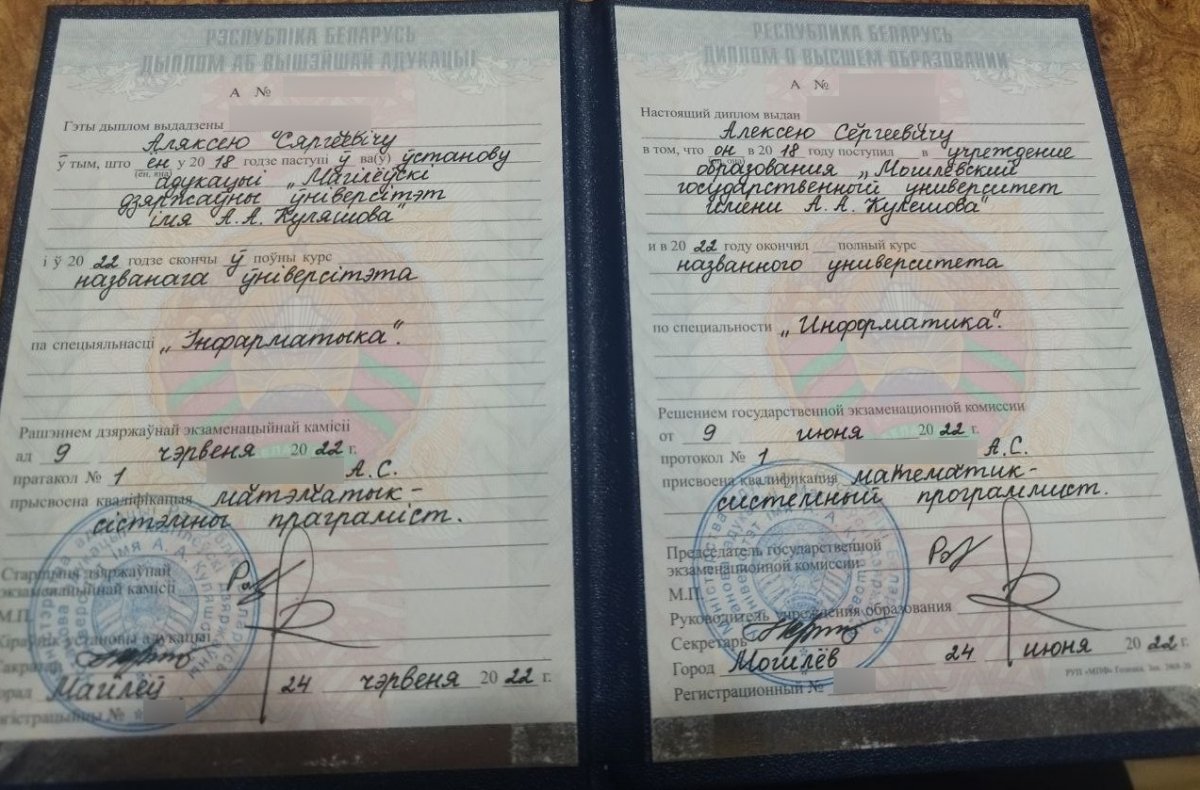 РЭСПУБЛІКА БЕЛАРУСЬ
ДЫПЛОМ АБ ВЫШЭЙШАЙ АДУКАЦЫІ
А №
Гэты дыплом выдадзены
Аляксею Сяргеевічу
ў тым, што ён у 20 18 годзе паступіў ва(ў) ўстанову
(ён, яна)
адукацыі „Магілёўскі
дзяржаўны ўніверсітэт
імя А. А. Куляшова“
і ў 20 22 годзе скончыў поўны курс
названага ўніверсітэта
па спецыяльнасці „Інфарматыка“.
Рашэннем дзяржаўнай экзаменацыйнай камісіі
ад 9 чэрвеня 20 22 г.
пратакол № 1 А.С.
прысвоена кваліфікацыя матэматык-
сістэмны праграміст.
Старшыня дзяржаўнай
экзаменацыйнай камісіі
М.П.
Кіраўнік установы адукацыі
Сакратар
Магілёў 24 чэрвеня 20 22 г.
Рэгістрацыйны №
РЕСПУБЛИКА БЕЛАРУСЬ
ДИПЛОМ О ВЫСШЕМ ОБРАЗОВАНИИ
А №
Настоящий диплом выдан
Алексею Сергеевичу
в том, что он в 20 18 году поступил в учреждение
(он, она)
образования „Могилевский
государственный университет
имени А. А. Кулешова“
и в 20 22 году окончил полный курс
названного университета
по специальности „Информатика“.
Решением государственной экзаменационной комиссии
от 9 июня 20 22 г.
протокол № 1 А.С.
присвоена квалификация математик-
системный программист.
Председатель государственной
экзаменационной комиссии
М.П.
Руководитель учреждения образования
Секретарь
Город Могилёв 24 июня 20 22 г.
Регистрационный №